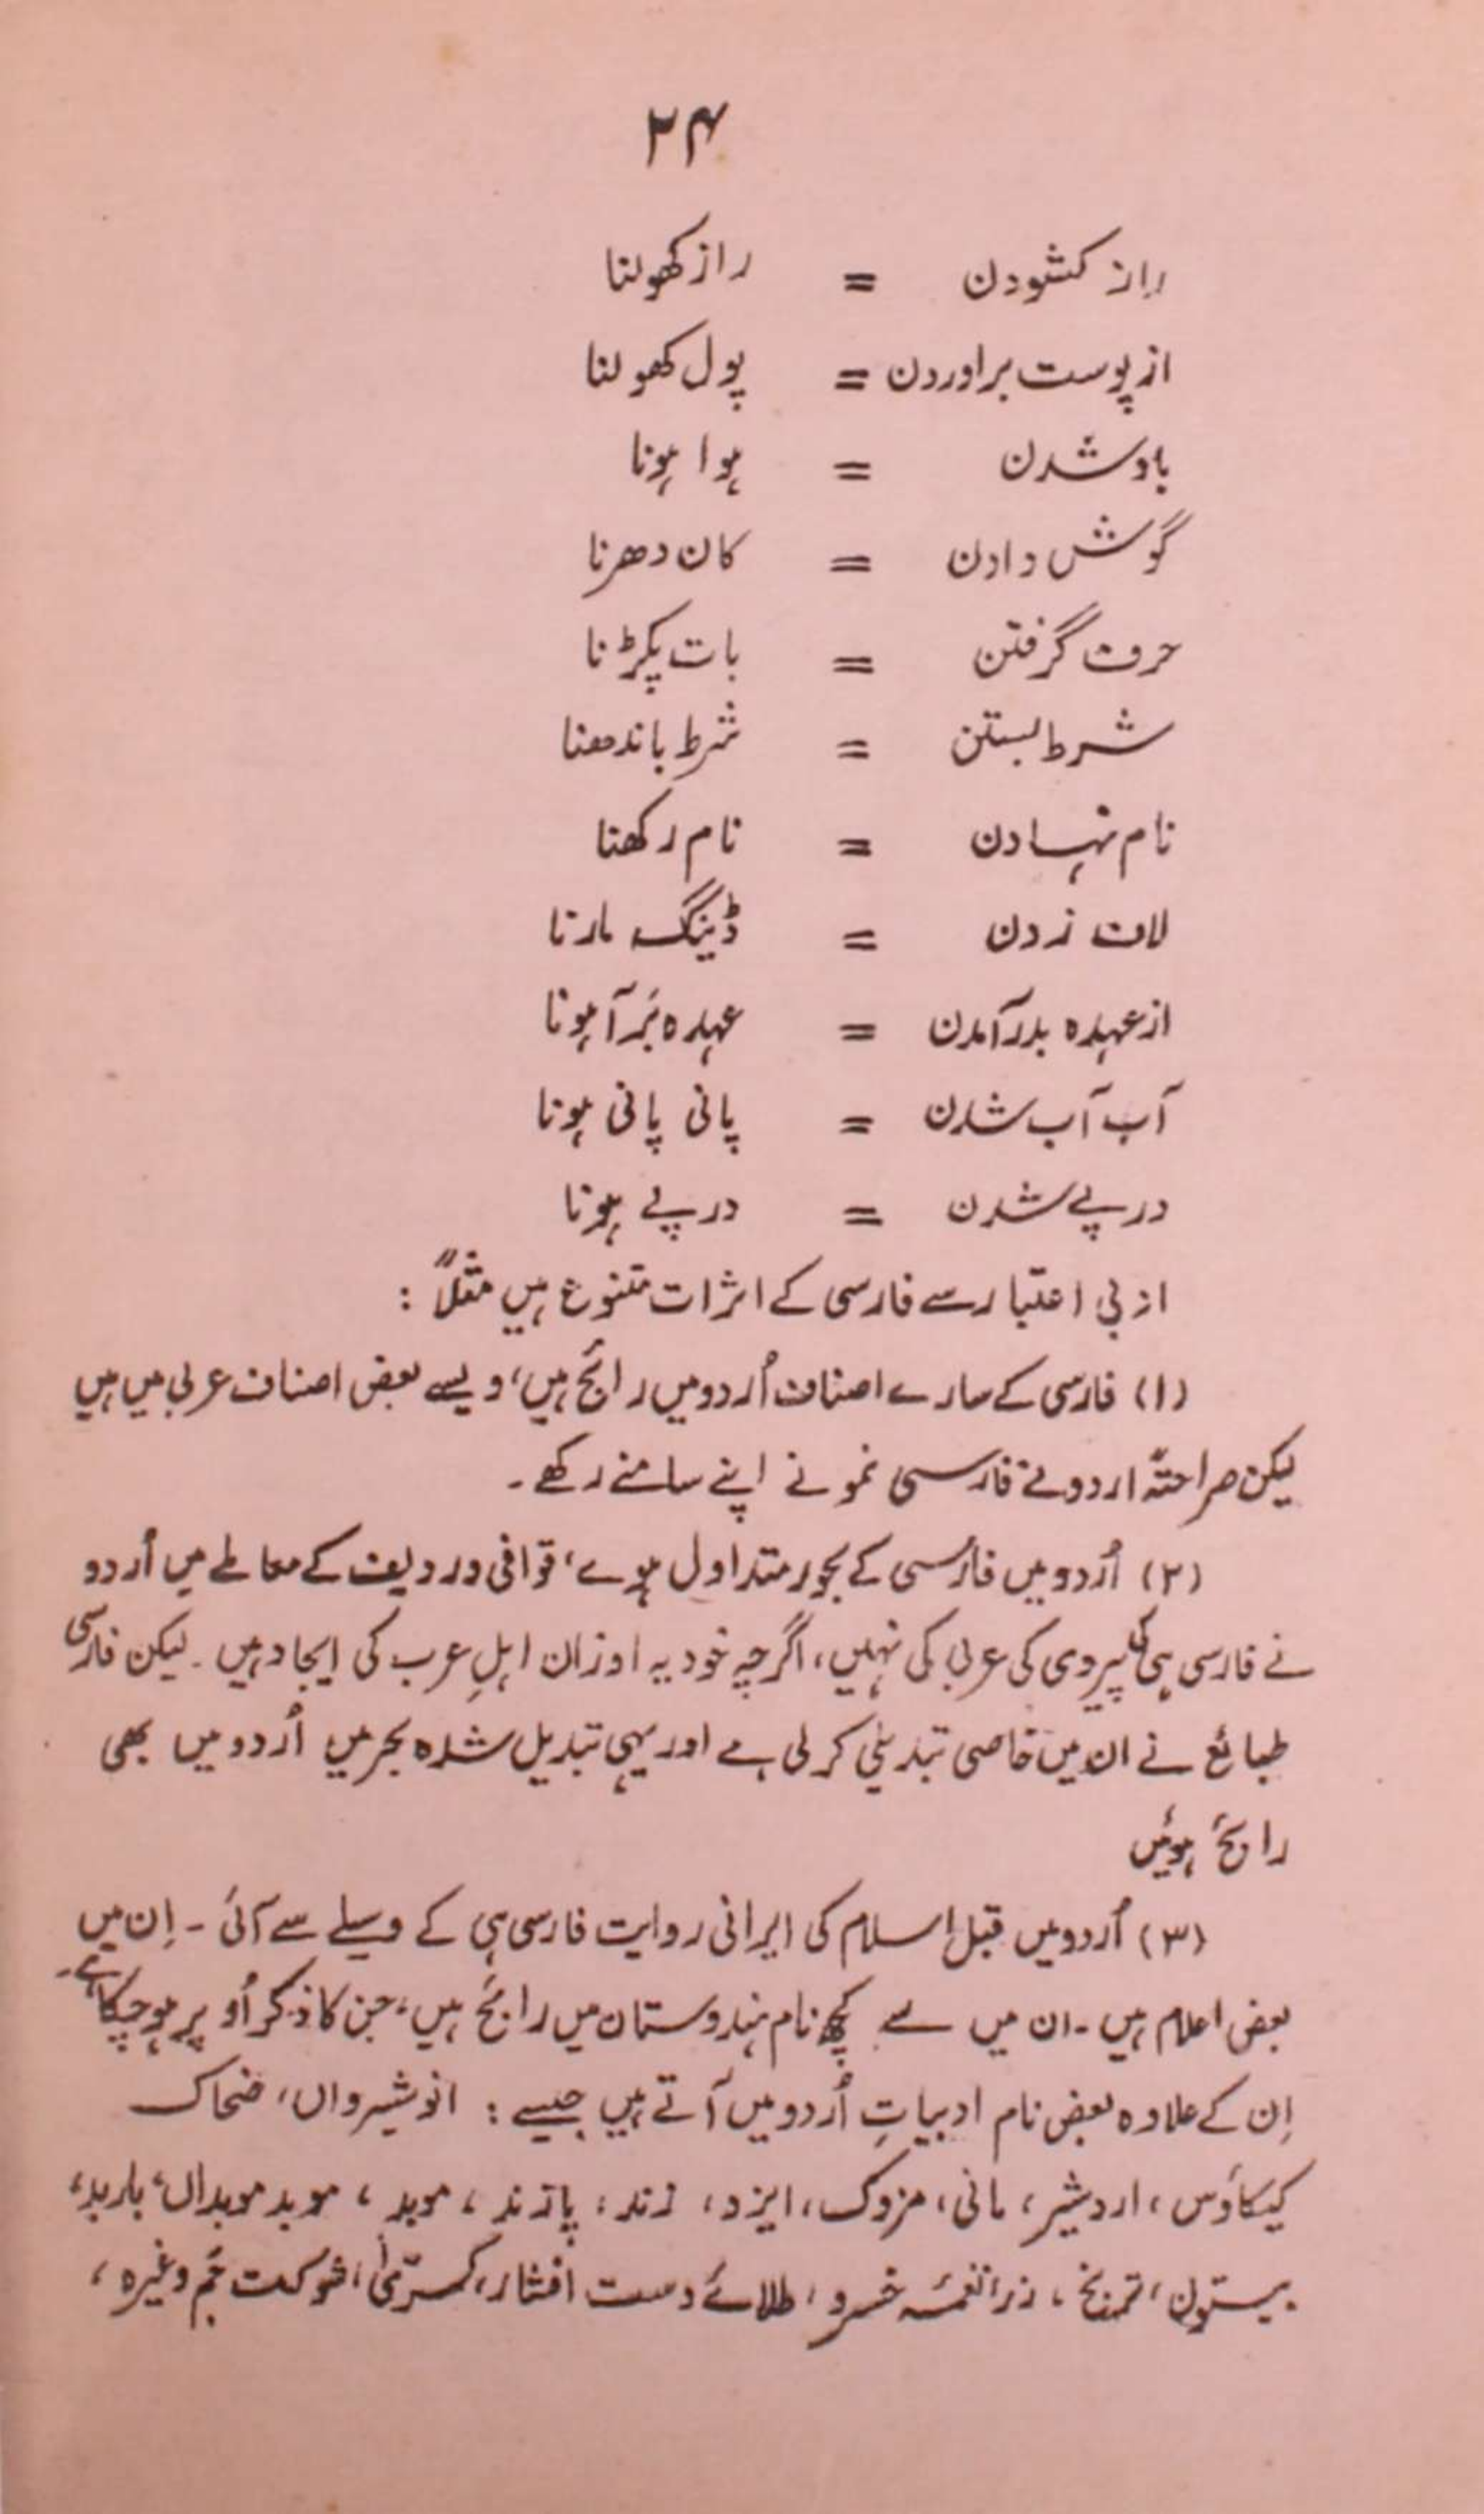 ۲۴
راز کشودن = راز کھولنا
از پوست براوردن = پول کھولنا
باد شدن = ہوا ہونا
گوش دادن = کان دھرنا
حرف گرفتن = بات پکڑنا
شرط بستن = شرط باندھنا
نام نہادن = نام رکھنا
لاف زدن = ڈینگ مارنا
از عہدہ بدر آمدن = عہدہ بَرآ ہونا
آب آب شدن = پانی پانی ہونا
درپے شدن = درپے ہونا
ادبی اعتبار سے فارسی کے اثرات متنوع ہیں مثلاً :
(۱) فارسی کے سارے اصناف اُردو میں رائج ہیں، ویسے بعض اصناف عربی میں ہیں
لیکن صراحتہً اردو نے فارسی نمونے اپنے سامنے رکھے۔
(۲) اُردو میں فارسی کے بحور متداول ہوے، قوافی و ردیف کے معاملے میں اُردو
نے فارسی ہی کی پیروی کی عربی کی نہیں، اگرچہ خود یہ اوزان اہلِ عرب کی ایجاد ہیں۔ لیکن فارسی
طبائع نے ان میں خاصی تبدیلی کر لی ہے اور یہی تبدیل شدہ بحریں اُردو میں بھی
رائج ہوئیں
(۳) اُردو میں قبل اسلام کی ایرانی روایت فارسی ہی کے وسیلے سے آئی ۔ اِن میں
بعض اعلام ہیں ۔ ان میں سے کچھ نام ہندوستان میں رائج ہیں، جن کا ذکر اُوپر ہو چکا ہے۔
اِن کے علاوہ بعض نام ادبیاتِ اُردو میں آتے ہیں جیسے : انوشیرواں، ضحاک
کیکاؤس، اردشیر، مانی، مزدک، ایزد، زند، پازند، موبد، موبد موبداں، باربد،
بیستون، ترنج، زر، نغمۂ خسرو، طلائے دست افشار، کسریٰ، شوکت جَم وغیرہ،